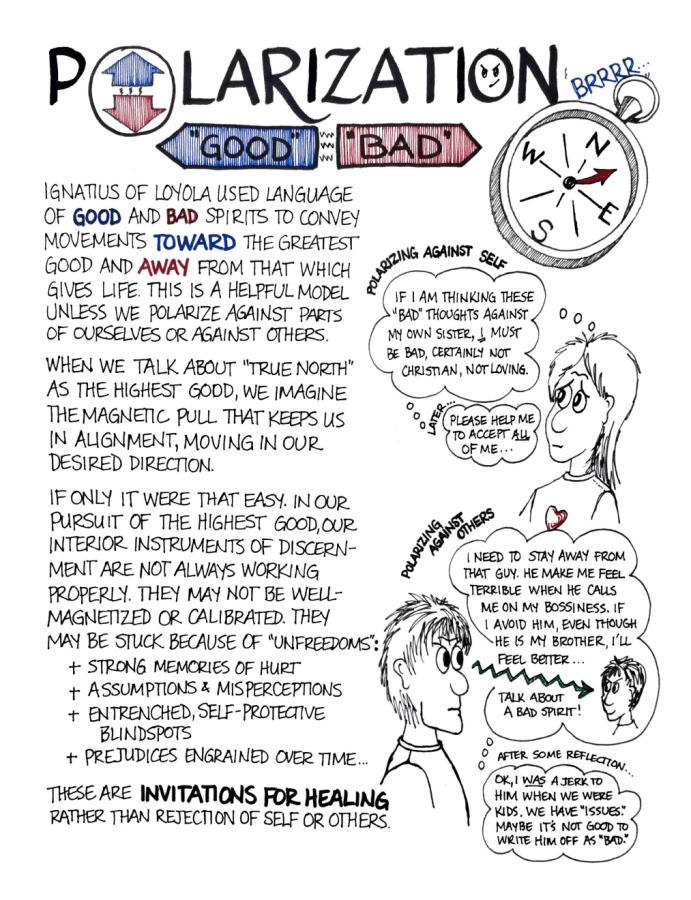 POLARIZATION
BRRRR...
"GOOD" "BAD"
N
E
S
W
IGNATIUS OF LOYOLA USED LANGUAGE
OF GOOD AND BAD SPIRITS TO CONVEY
MOVEMENTS TOWARD THE GREATEST
GOOD AND AWAY FROM THAT WHICH
GIVES LIFE. THIS IS A HELPFUL MODEL
UNLESS WE POLARIZE AGAINST PARTS
OF OURSELVES OR AGAINST OTHERS.
WHEN WE TALK ABOUT "TRUE NORTH"
AS THE HIGHEST GOOD, WE IMAGINE
THE MAGNETIC PULL THAT KEEPS US
IN ALIGNMENT, MOVING IN OUR
DESIRED DIRECTION.
IF ONLY IT WERE THAT EASY. IN OUR
PURSUIT OF THE HIGHEST GOOD, OUR
INTERIOR INSTRUMENTS OF DISCERN-
MENT ARE NOT ALWAYS WORKING
PROPERLY. THEY MAY NOT BE WELL-
MAGNETIZED OR CALIBRATED. THEY
MAY BE STUCK BECAUSE OF "UNFREEDOMS":
+ STRONG MEMORIES OF HURT
+ ASSUMPTIONS & MISPERCEPTIONS
+ ENTRENCHED, SELF-PROTECTIVE
BLINDSPOTS
+ PREJUDICES ENGRAINED OVER TIME...
THESE ARE INVITATIONS FOR HEALING
RATHER THAN REJECTION OF SELF OR OTHERS.
POLARIZING AGAINST SELF
IF I AM THINKING THESE
"BAD" THOUGHTS AGAINST
MY OWN SISTER, I MUST
BE BAD, CERTAINLY NOT
CHRISTIAN, NOT LOVING.
LATER...
PLEASE HELP ME
TO ACCEPT ALL
OF ME...
POLARIZING
AGAINST
OTHERS
I NEED TO STAY AWAY FROM
THAT GUY. HE MAKE ME FEEL
TERRIBLE WHEN HE CALLS
ME ON MY BOSSINESS. IF
I AVOID HIM, EVEN THOUGH
HE IS MY BROTHER, I'LL
FEEL BETTER...
TALK ABOUT
A BAD SPIRIT!
AFTER SOME REFLECTION...
OK, I WAS A JERK TO
HIM WHEN WE WERE
KIDS. WE HAVE "ISSUES."
MAYBE IT'S NOT GOOD TO
WRITE HIM OFF AS "BAD."